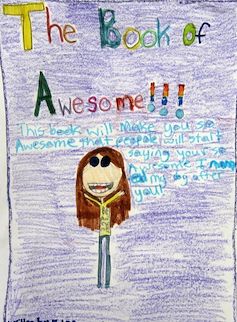 The Book of
Awesome!!!
This book will make you so
Awesome that people will start
saying you're so
my dog after
you!